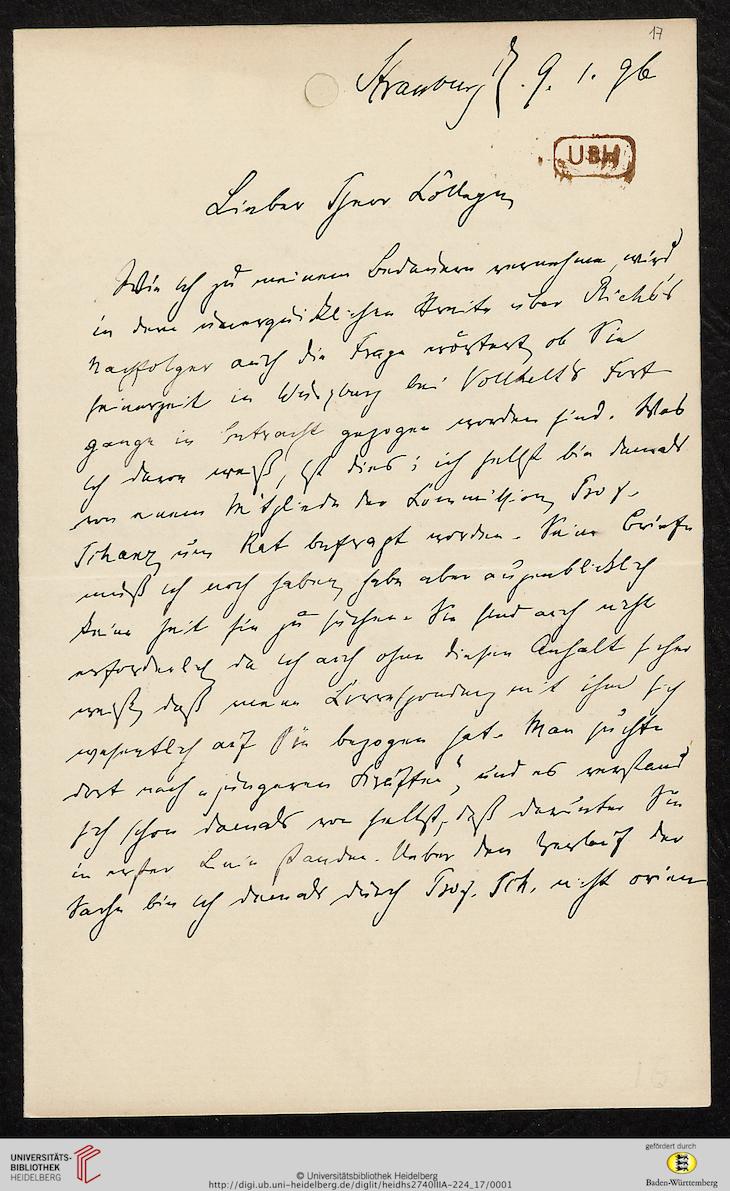 17
Strassburg 9. 1. 96
UBH
Lieber Herr College,
Wie ich zu meinem Bedauern vernehme, wird
in dem unerquicklichen Streite über Riehl's
Nachfolger auch die Frage erörtert, ob Sie
seinerzeit in Würzburg bei Volkelt's Fort-
gange in Betracht gezogen worden sind. Was
ich davon weiß, ist dies: ich selbst bin damals
von einem Mitgliede der Commission, Prof.
Schanz um Rat befragt worden. Seine Briefe
muß ich noch haben, habe aber augenblicklich
keine Zeit sie zu suchen. Sie sind auch nicht
erforderlich, da ich auch ohne diesen Anhalt sicher
weiß, daß meine Correspondenz mit ihm sich
wesentlich auf Sie bezogen hat. Man suchte
dort nach „jüngeren Kräften", und es verstand
sich schon damals von selbst, daß darunter Sie
in erster Linie standen. Ueber den Verlauf der
Sache bin ich damals durch Prof. Sch. nicht orien-
UNIVERSITÄTS-
BIBLIOTHEK
HEIDELBERG
© Universitätsbibliothek Heidelberg
http://digi.ub.uni-heidelberg.de/diglit/heidhs2740IIIA-224_17/0001
gefördert durch
Baden-Württemberg